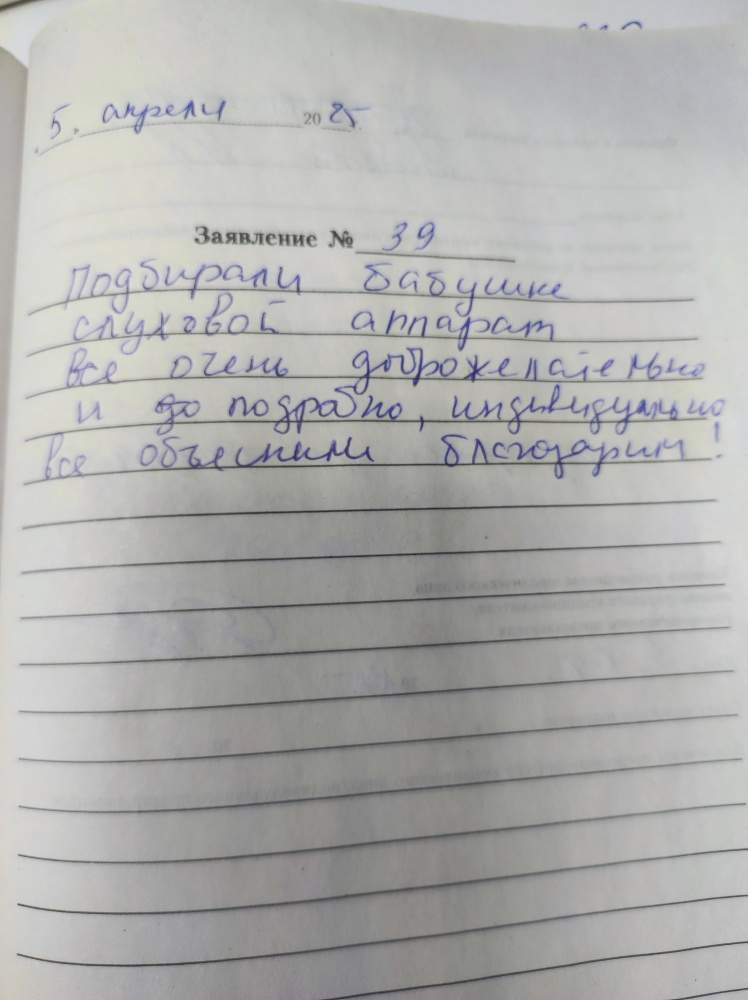 5. апреля 2025
Заявление № 39
Подбирали бабушке
слуховой аппарат
все очень доброжелательно
и подробно, индивидуально
все объяснили благодарим!